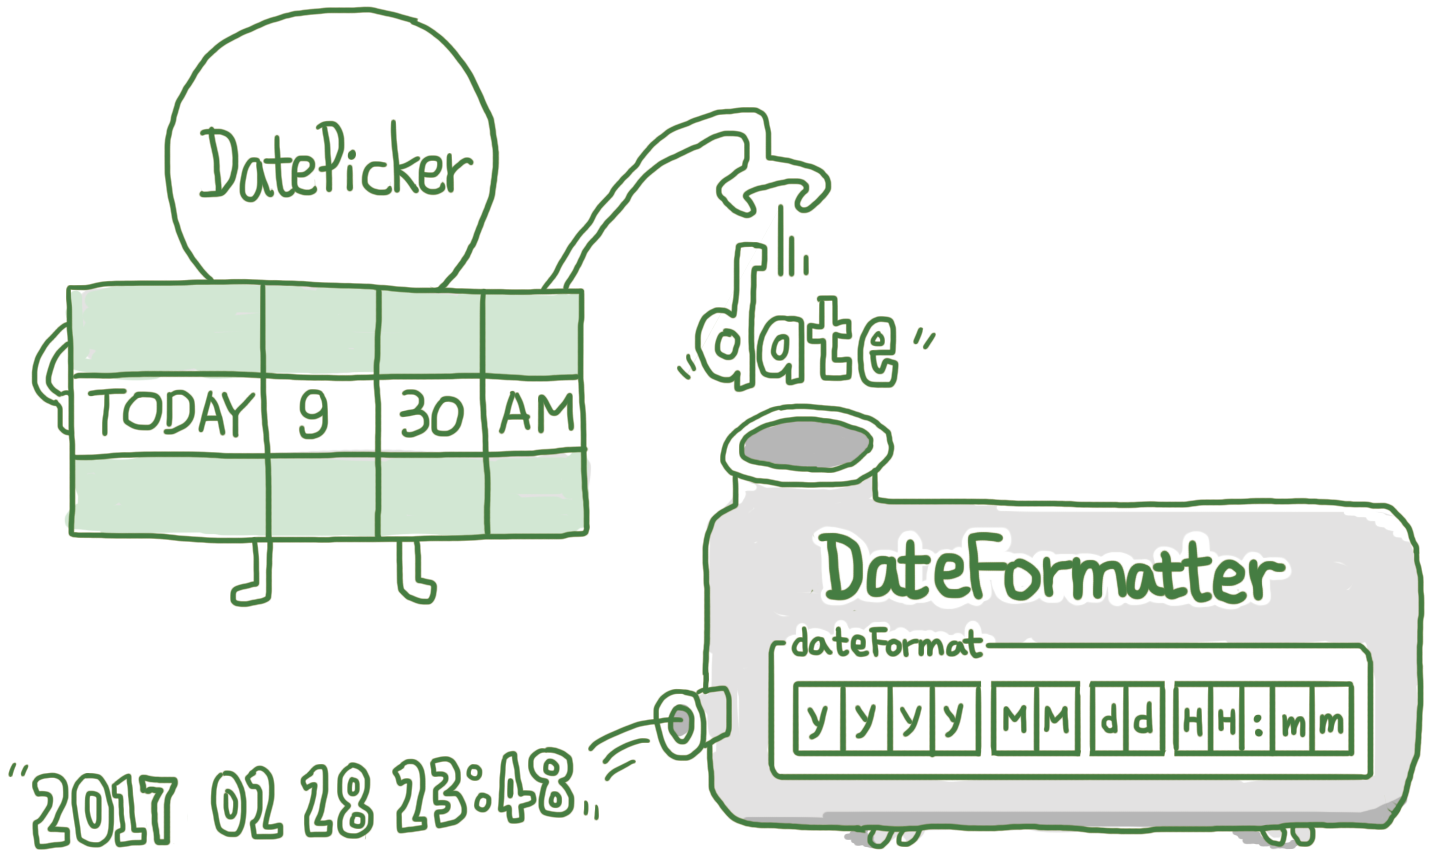 DatePicker
TODAY 9 30 AM
date
DateFormatter
dateFormat
yyyy MM dd HH:mm
"2017 02 28 23:48"